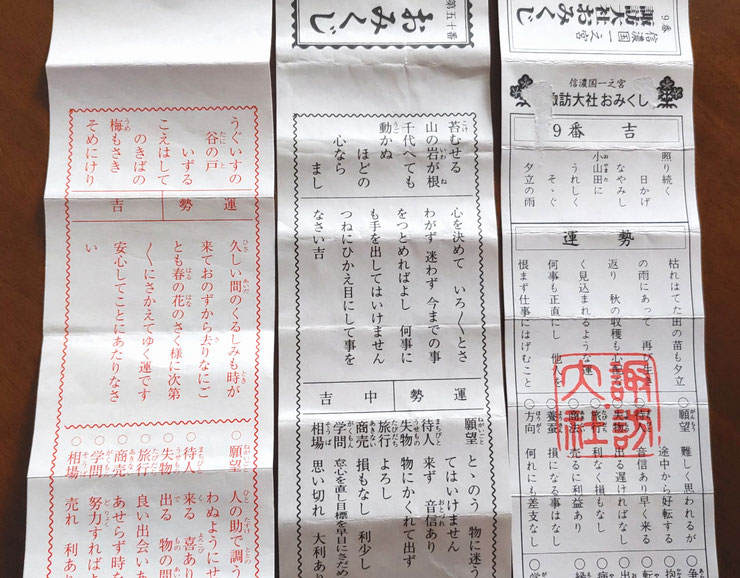 うぐいすの
谷の戸
いずる
こえはして
のきばの
梅もさき
そめにけり
運勢 吉
久しい間のくるしみも時が
来ておのずから去りなにご
とも春の花のさく様に次第
〱にさかえてゆく運です
安心してことにあたりなさ
い
○願望 人の助で調う
わぬようにせ
○待人 来る 喜あり
○失物 出る 物の間
○旅行 良い出会いあ
○商売 あせらず時な
○学問 努力すればよ
○相場 売れ 利あり
第五十番
おみくじ
苔むせる
山の岩が根
千代へても
動かぬ
ほどの
心なら
まし
心を決めて いろ〱とさ
わがず 迷わず 今までの事
をつとめればよし 何事に
も手を出してはいけません
つねにひかえ目にして事を
なさい吉
運勢 中吉
願望 とゝのう 物に迷う
てはいけません
待人 来ず 音信あり
失物 物にかくれて出ず
旅行 よろし
商売 損もなし 利少し
学問 怠心を直し目標を早目にさだめ
相場 思い切れ 大利あり
9番
信濃国一之宮
諏訪大社おみくじ
信濃国一之宮
諏訪大社おみくじ
9番 吉
照り続く
日かげ
なやみし
小山田に
うれしく
そゝぐ
夕立の雨
運勢
枯れはてた田の苗も夕立
の雨にあって 再び生き
返り 秋の収穫も心配な
く見込まれるような運
何事も正直にし 他人を
恨まず仕事にはげむこと
諏訪大社
○願望 難しく思われるが
途中から好転する
○待人 音信あり早く来る
○失物 出る遅ければなし
○旅行 利なく損もなし
○商法 売るに利益あり
○養蚕 損になる事はなし
○方向 何れにも差支なし